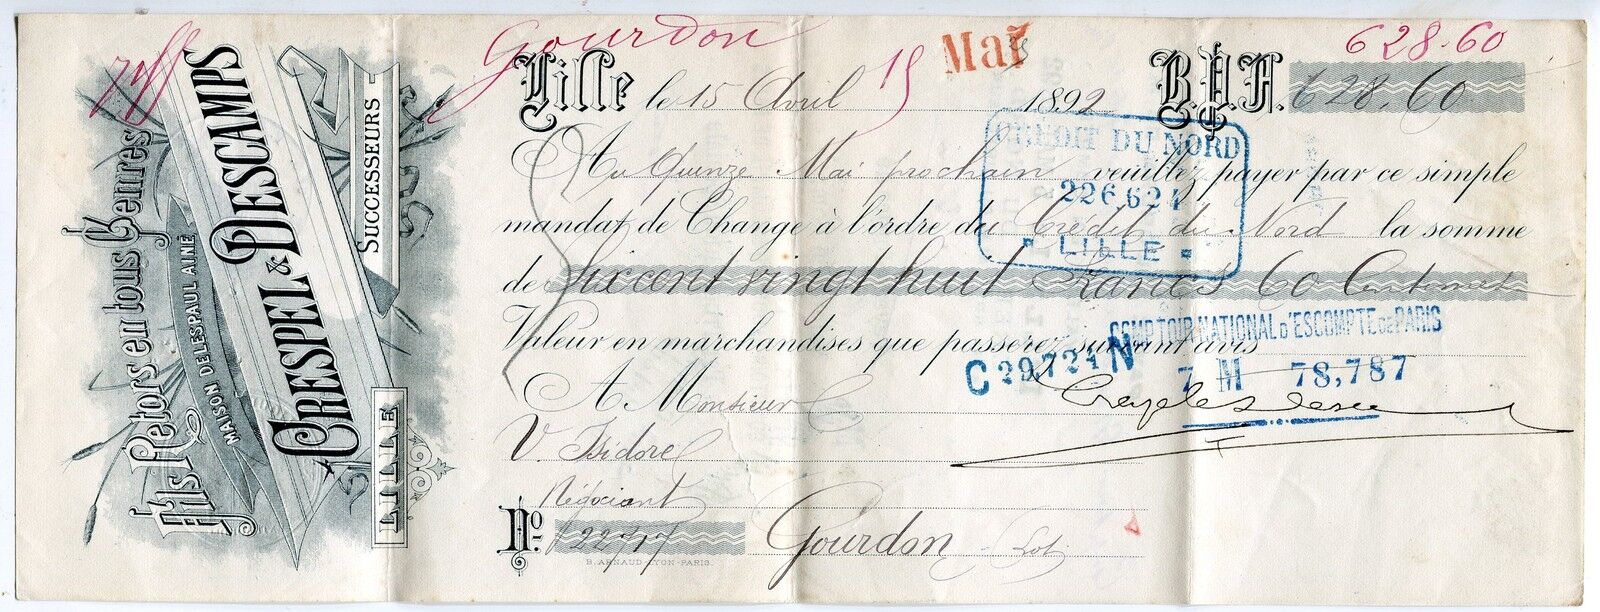 Fils Retors en tous Genres
MAISON DELESPAUL AINÉ
CRESPEL & DESCAMPS
SUCCESSEURS
LILLE
Gourdon
15 Mai
628.60
Lille le 15 Avril 1892 B.P.F. 628,60
Au Quinze Mai prochain veuillez payer par ce simple
mandat de Change à l'ordre du Crédit du Nord la somme
de Six cent vingt huit Francs 60 Centimes
Valeur en marchandises que passerez suivant avis
CRÉDIT DU NORD
226.624
LILLE
COMPTOIR NATIONAL D'ESCOMPTE DE PARIS
C 29,724 N 7 M 78,787
A Monsieur
V. Isidore
Négociant
No. 22717 Gourdon Lot
B. ARNAUD LYON-PARIS.